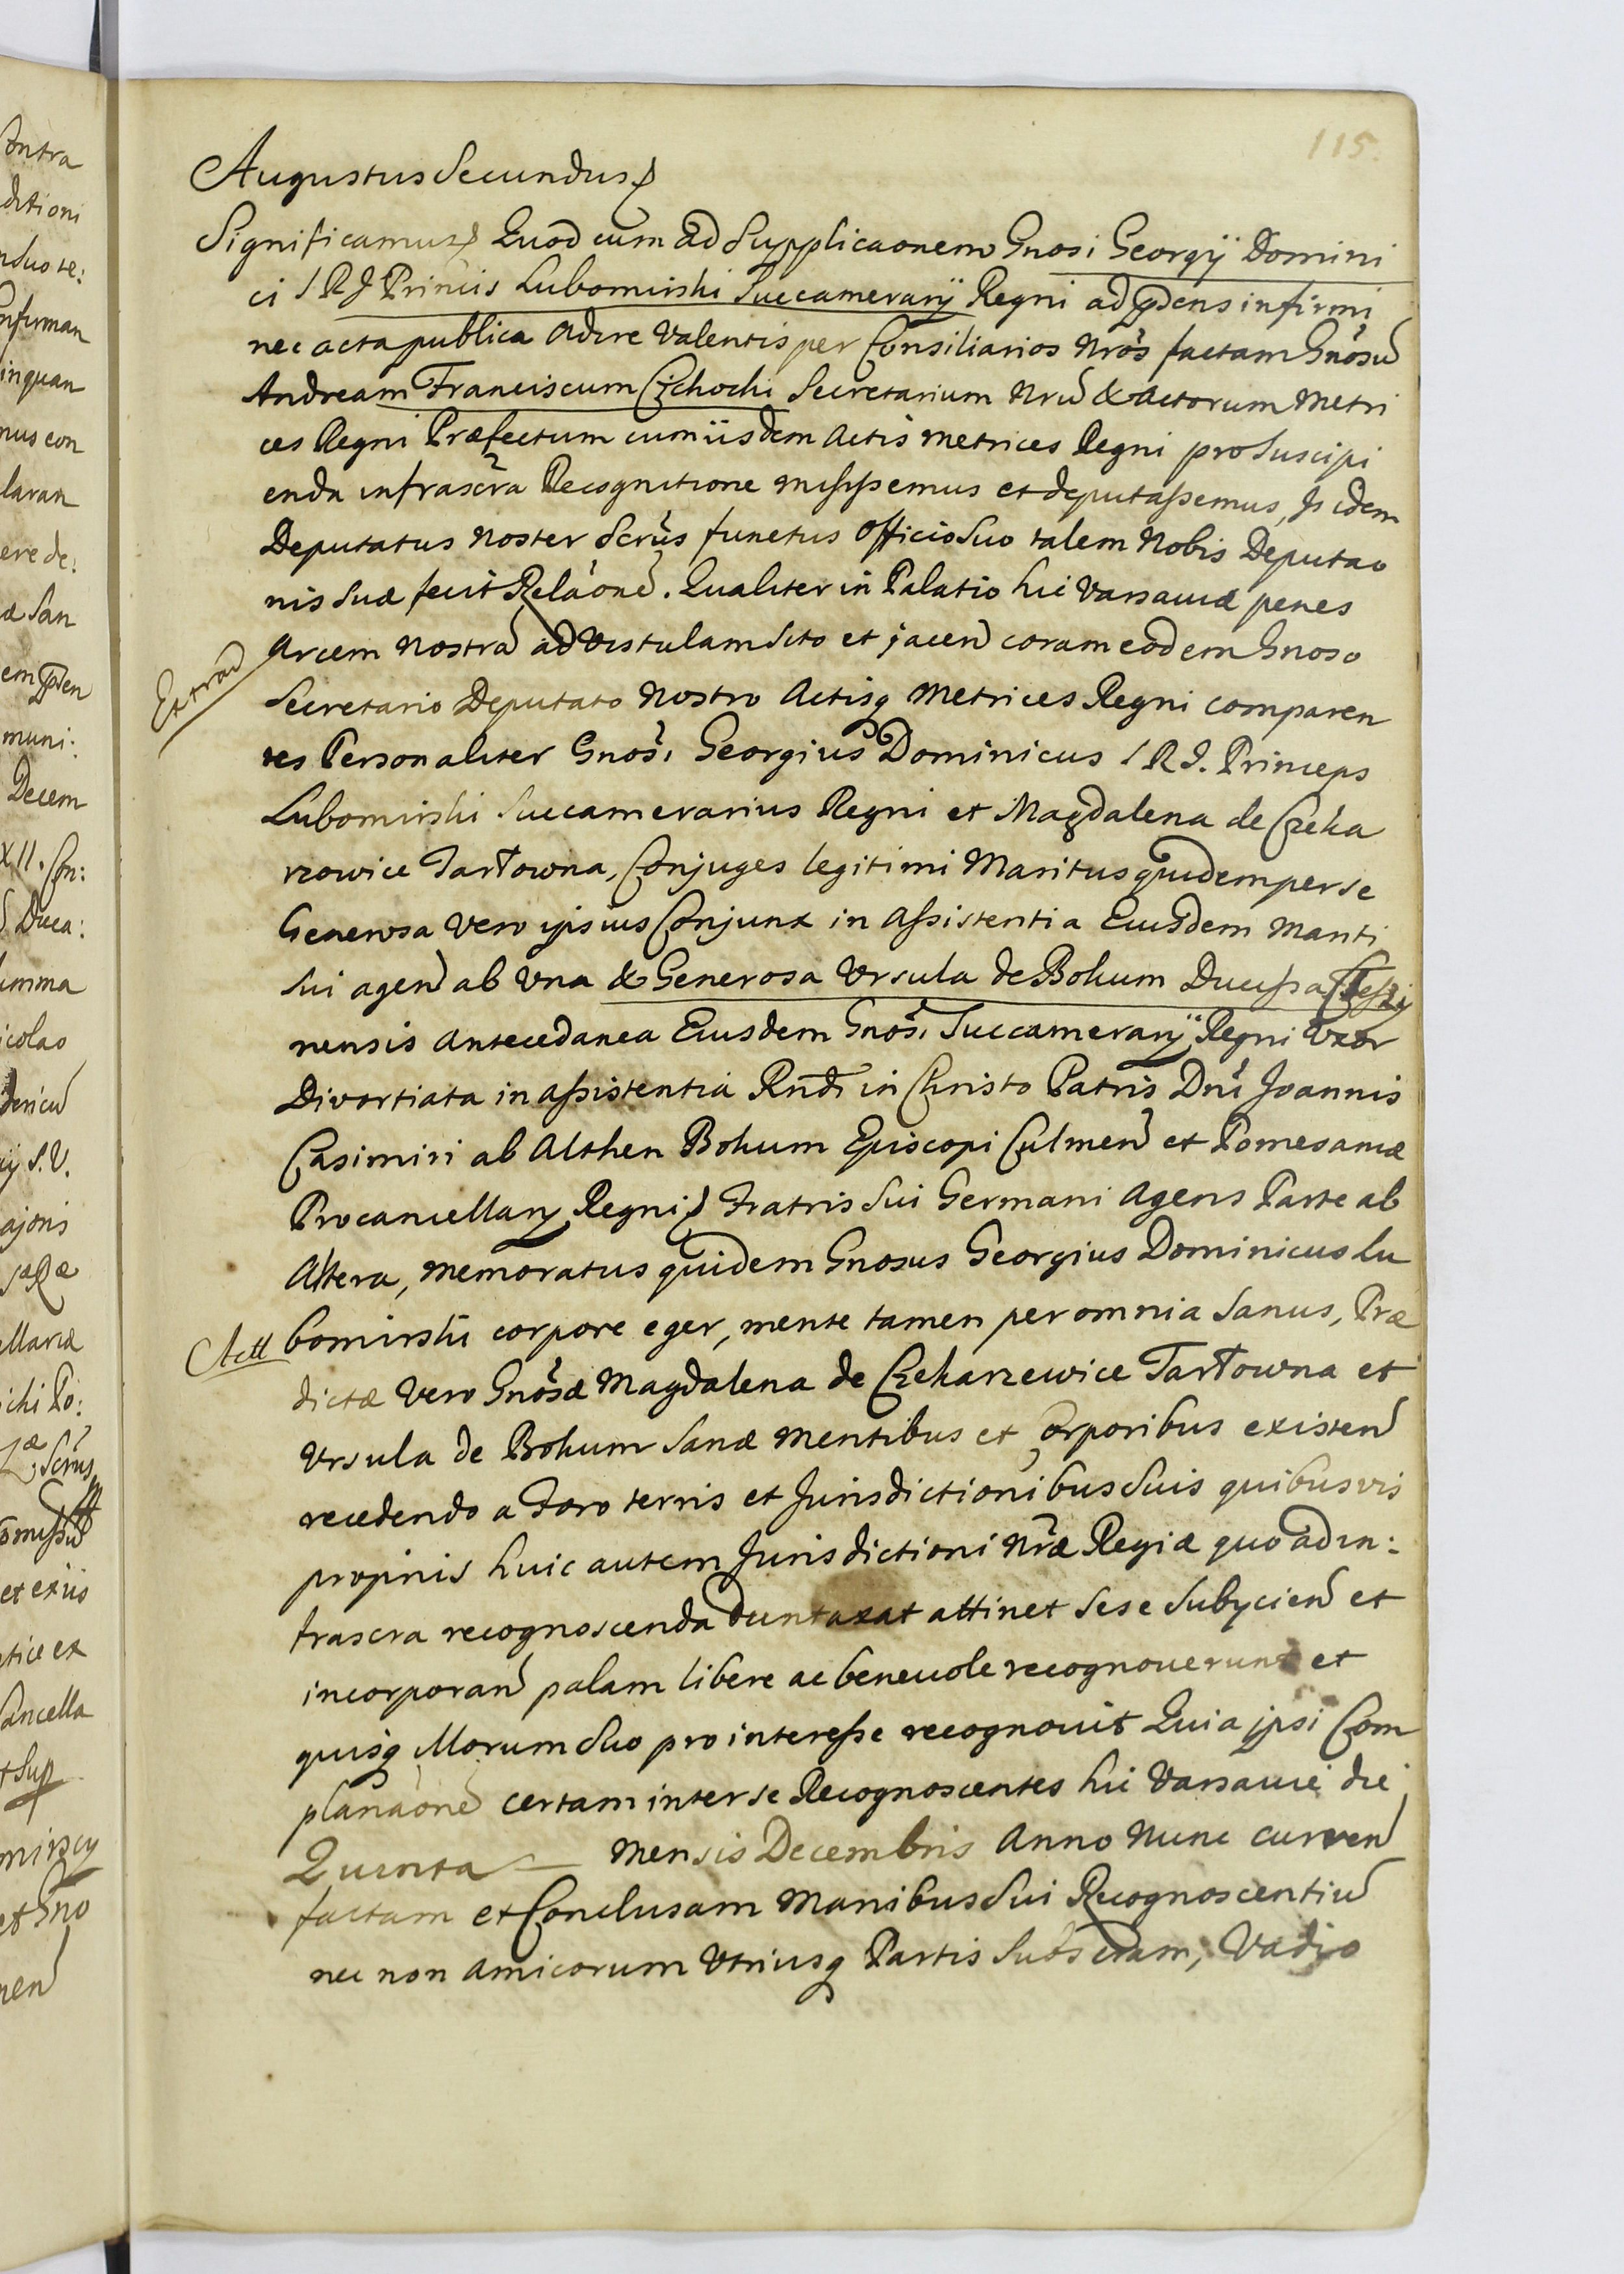 115.
Augustus Secundus
Significamus Quod cum ad Supplicaonem Gnosi Georgÿ Domini
ci S R J Princis Lubomirski Succamerarÿ Regni ad pdens infirmi
nec acta publica adire valentis per Consiliarios Nros factam Gnosũ
Andream Franciscum Cichocki Secretarium Nrũ & Actorum Metri
ces Regni Præfectum cum iisdem Actis Metrices Regni pro suscipi
enda infrascra Recognitione misissemus et deputassemus, Is idem
Deputatus Noster Scrüs functus Officio Suo talem Nobis Deputao
nis Suæ fecit Relaonē. Qualiter in Palatio hic Varsaviæ penes
Extrad
Arcem Nostrã ad Vistulam Sito et jacen coram eodem Gnoso
Secretario Deputato Nostro Actisq Metrices Regni comparen
tes Personaliter Gnosi Georgius Dominicus S R J. Princeps
Lubomirski Succamerarius Regni et Magdalena de Czeka
rzowice Tarłowna, Conjuges legitimi Maritus quidem per se
Generosa vero ipsius Conjunx in Assistentia Eiusdem Mariti
Sui agen ab Vna & Generosa Vrsula de Bokum Ducissa Teszy
nensis Antecedanea Eiusdem Gnosi Succamerarÿ Regni Vxor
Divortiata in assistentia Rndi in Christo Patris Dni Joannis
Casimiri ab Althen Bokum Episcopi Culmen et Pomesaniæ
Procancellarÿ Regni Fratris Sui Germani Agens Parte ab
Altera, Memoratus quidem Gnosus Georgius Dominicus Lu
Actt
bomirski corpore eger, mente tamen per omnia Sanus, Præ
dictæ vero Gnosæ Magdalena de Czekarzewice Tarłowna et
Vrsula de Bokum Sanæ Mentibus et corporibus existen
recedendo a Foro terris et Jurisdictionibus Suis quibusvis
proprijs huic autem Jurisdictioni Nræ Regiæ quo ad in:
frascra recognoscenda duntaxat attinet sese Subÿcien et
incorporan palam libere ac beneuole recognouerunt et
quisq Illorum Suo pro interesse recognouit Quia ipsi Com
planaonē certam inter se Recognoscentes hic Varsauiæ die
Quinta — Mensis Decembris Anno Nunc curren
factam et Conclusam Manibus Sui Recognoscentiũ
nec non Amicorum Vtriusq Partis Subscram, Vadio